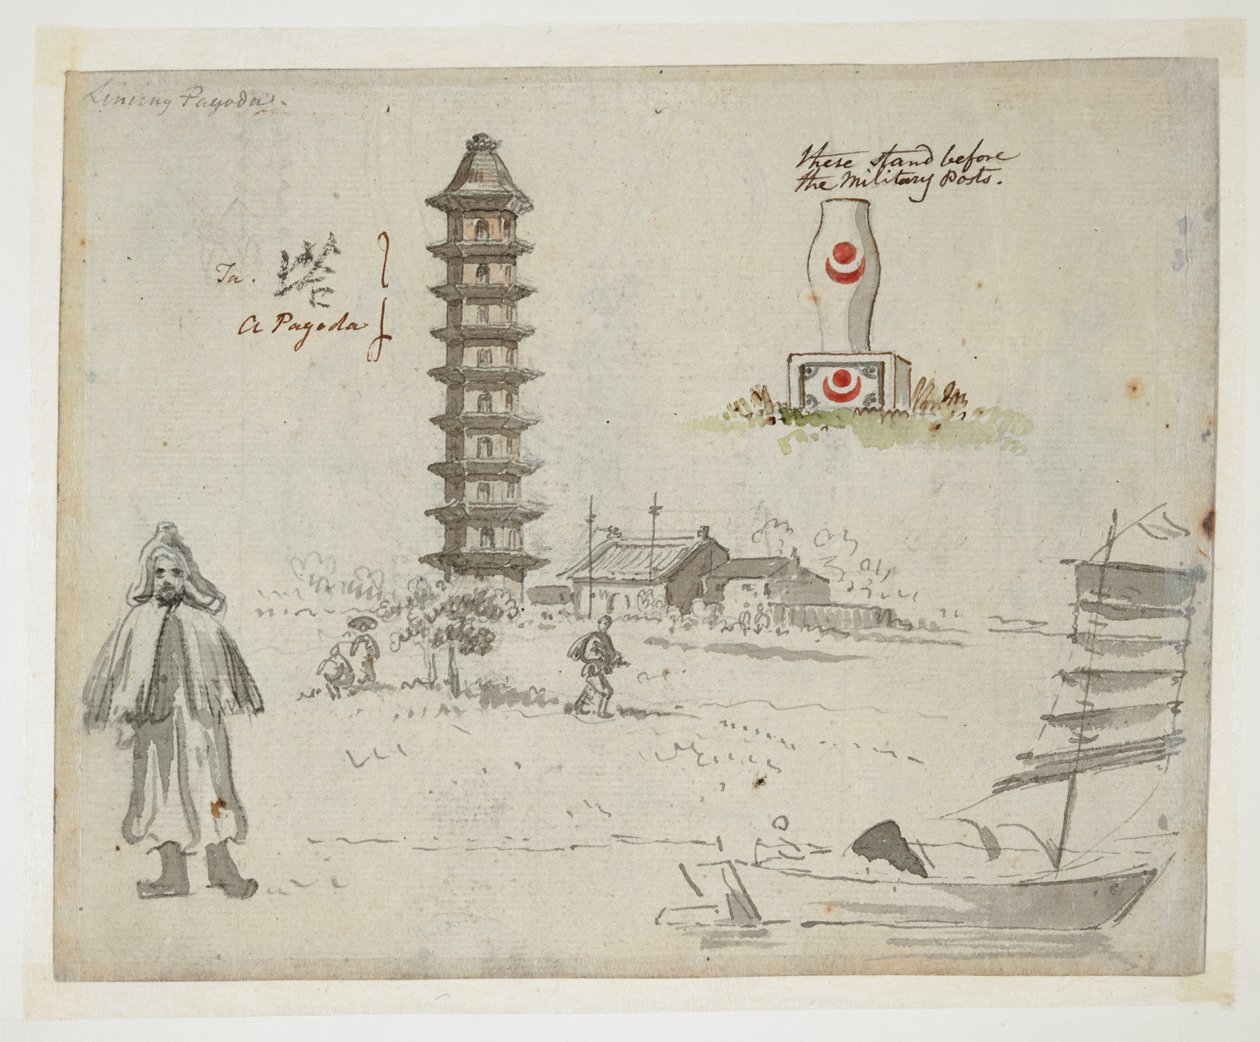 Lincing Pagoda.
these stand before
the Military Posts.
Ta. 塔
A Pagoda